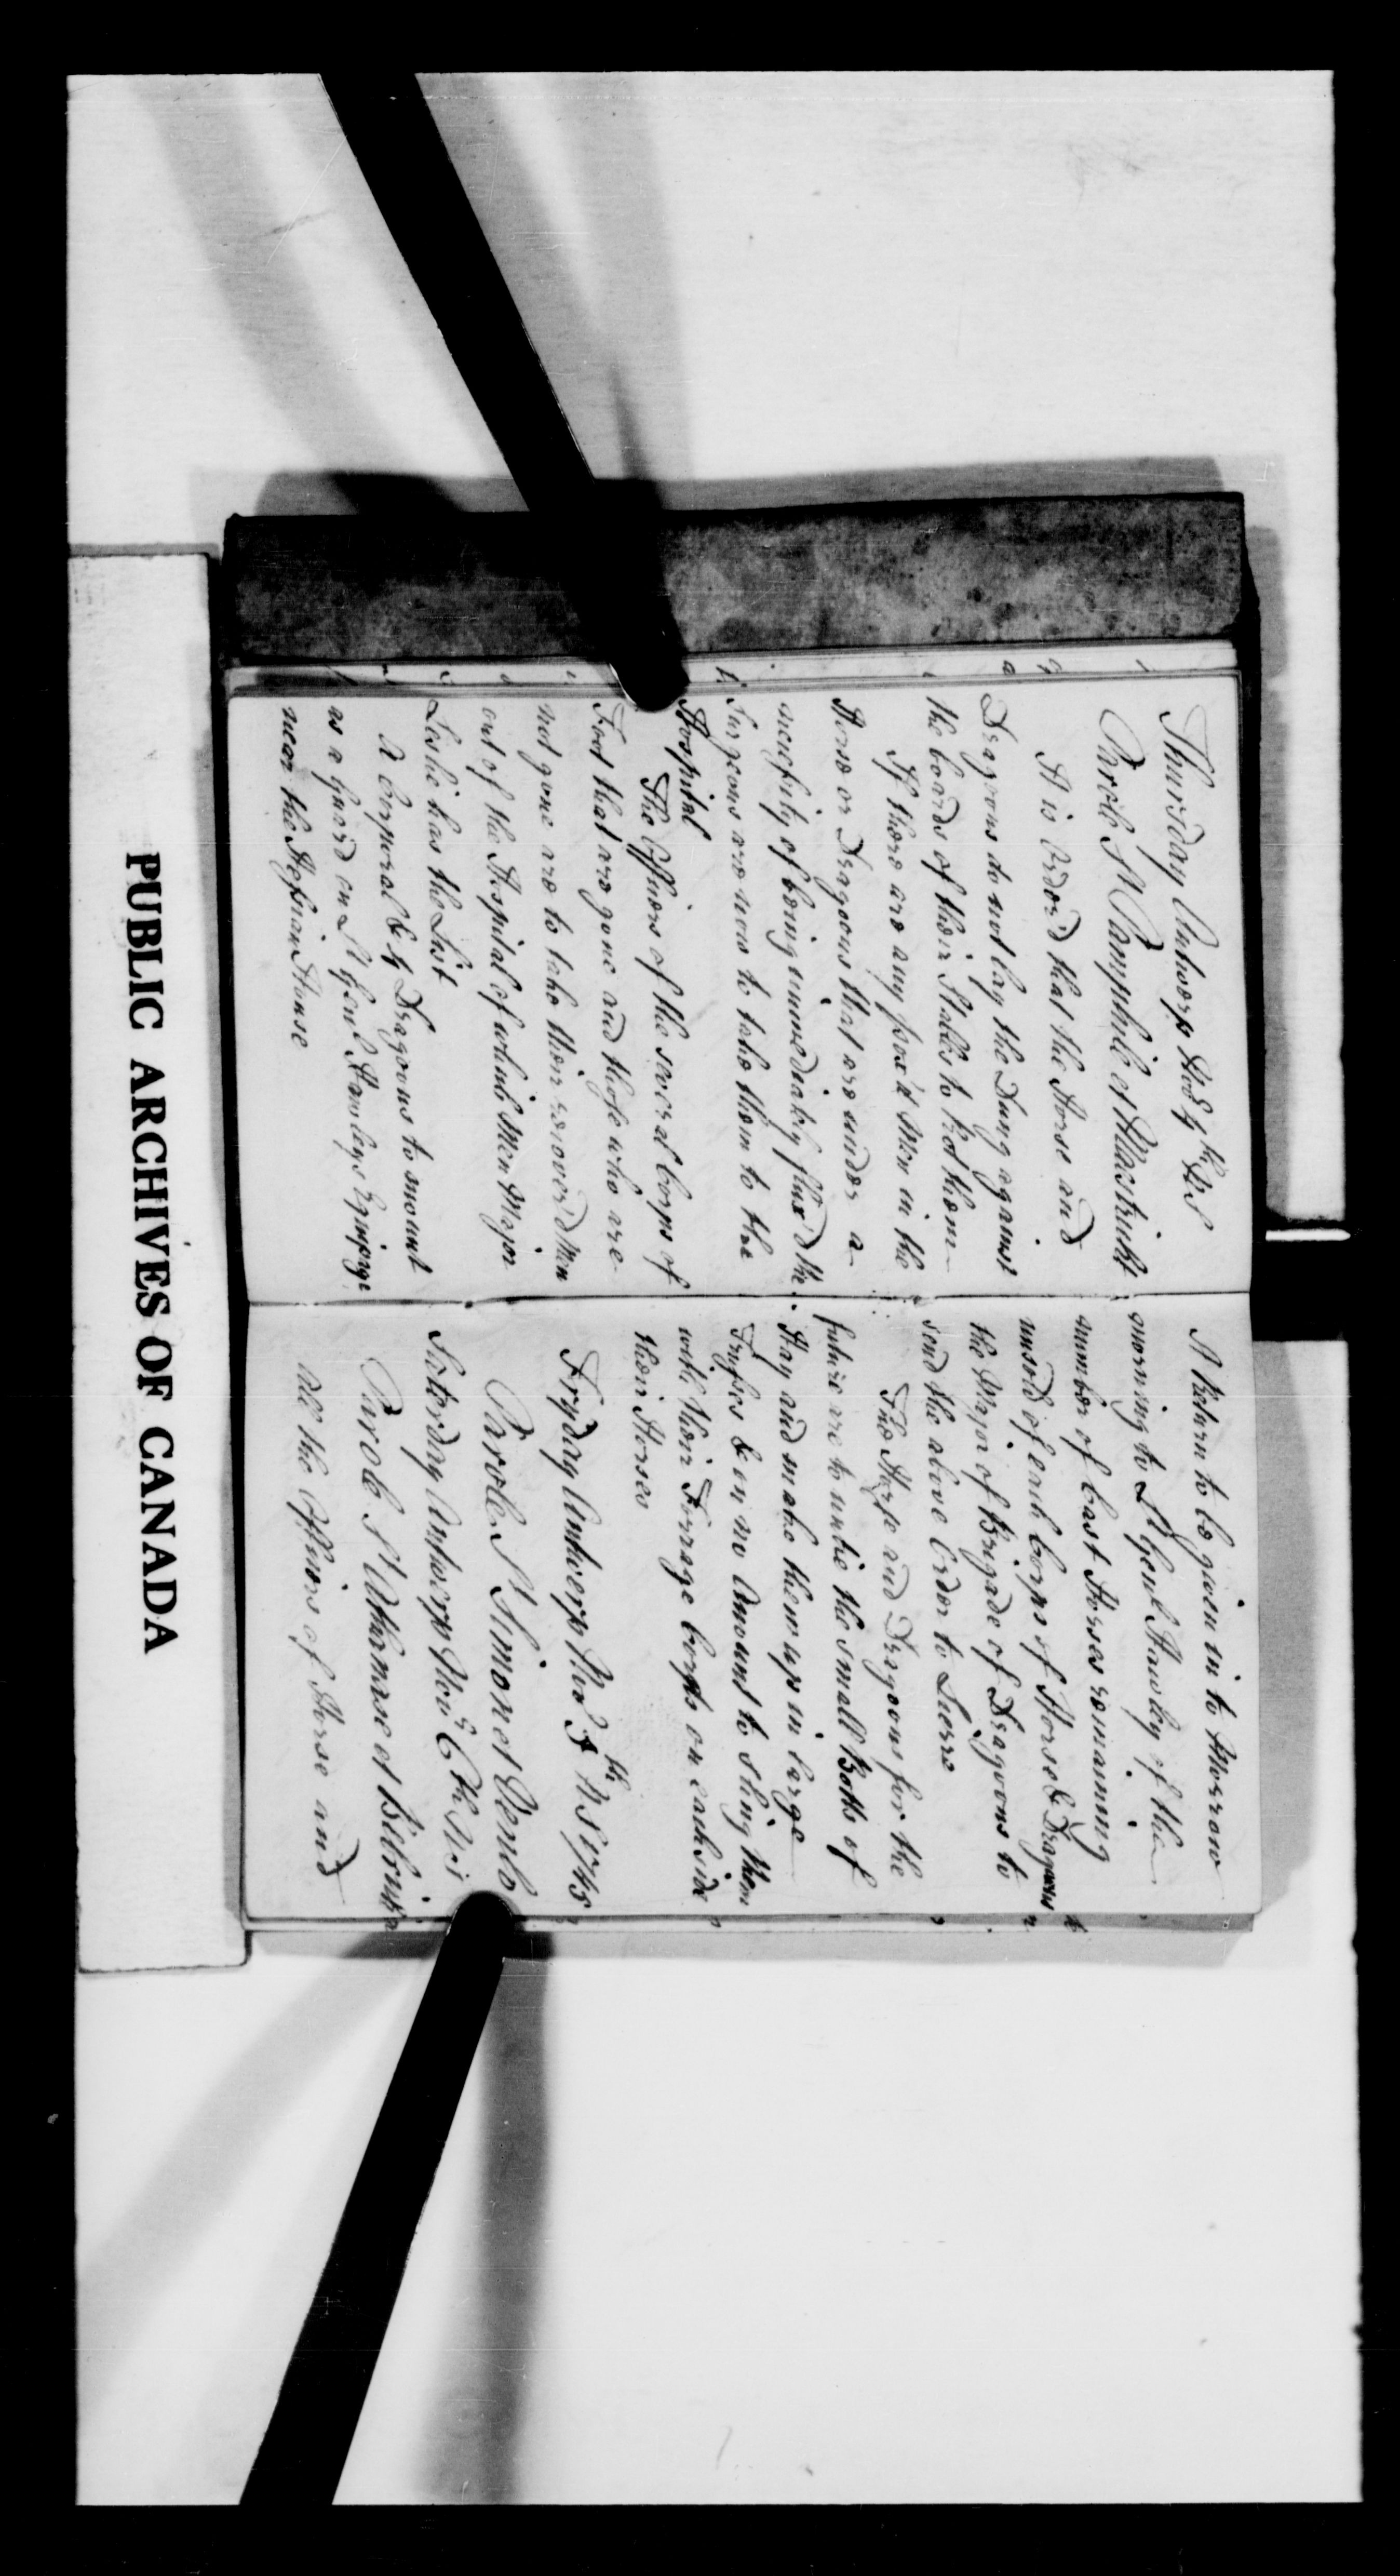 Thursday Antwerp
Parole St Pamphile et Mastricht
It is Order'd that the Horse and
Dragoons do not lay the Dung against
the boards of their Stalls to Rot them
If there are any pox'd Men in the
Horse or Dragoons that are under a
necessity of being immediately flux'd the
Surgeons are now to take them to the
Hospital
The Officers of the several Corps of
Foot that are gone and those who are
not gone are to take their recover'd Men
out of the Hospital of which Men Major
Leslie has the List
A Corporal & 4 Dragoons to mount
as a Guard on Lt Genl Hawleys Equipage
near the Hessian House
A Return to be given in to Morrow
morning to Lt Genl Hawley of the
number of Cast Horses remaining
unsold of each Corps of Horse & Dragoons
the Major of Brigade of Dragoons to
send the above Order to Lierre
The Horse and Dragoons for the
future are to untie the small Botts of
Hay and make them up in large
Trusses & on no Amount to sling them
with their Forrage Cords on each side
their Horses
Fryday Antwerp 1745
Parole St Simon et Venlo
Saterday Antwerp
Parole St Athanase et
All the Officers of Horse and
PUBLIC ARCHIVES OF CANADA